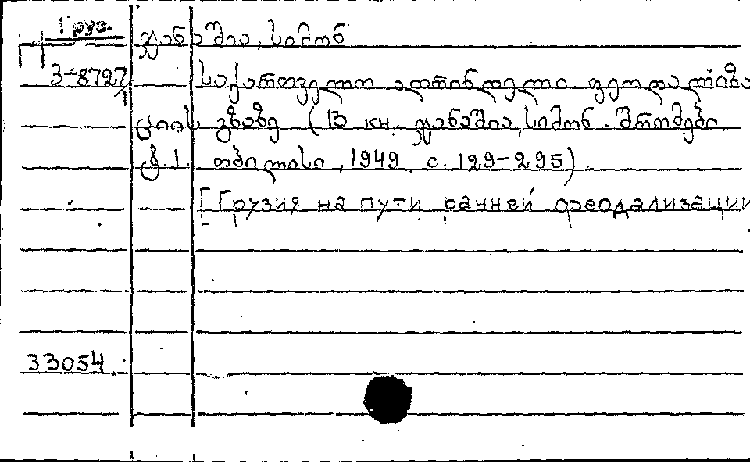 Груз.
ჯანაშია, სიმონ
3-8727/1
საქართველო ადრინდელი ფეოდალიზა
ციის გზაზე (В кн. ჯანაშია, სიმონ. შრომები
ტ.1. თბილისი, 1949. с. 129-295).
[Грузия на пути ранней феодализации
33054.